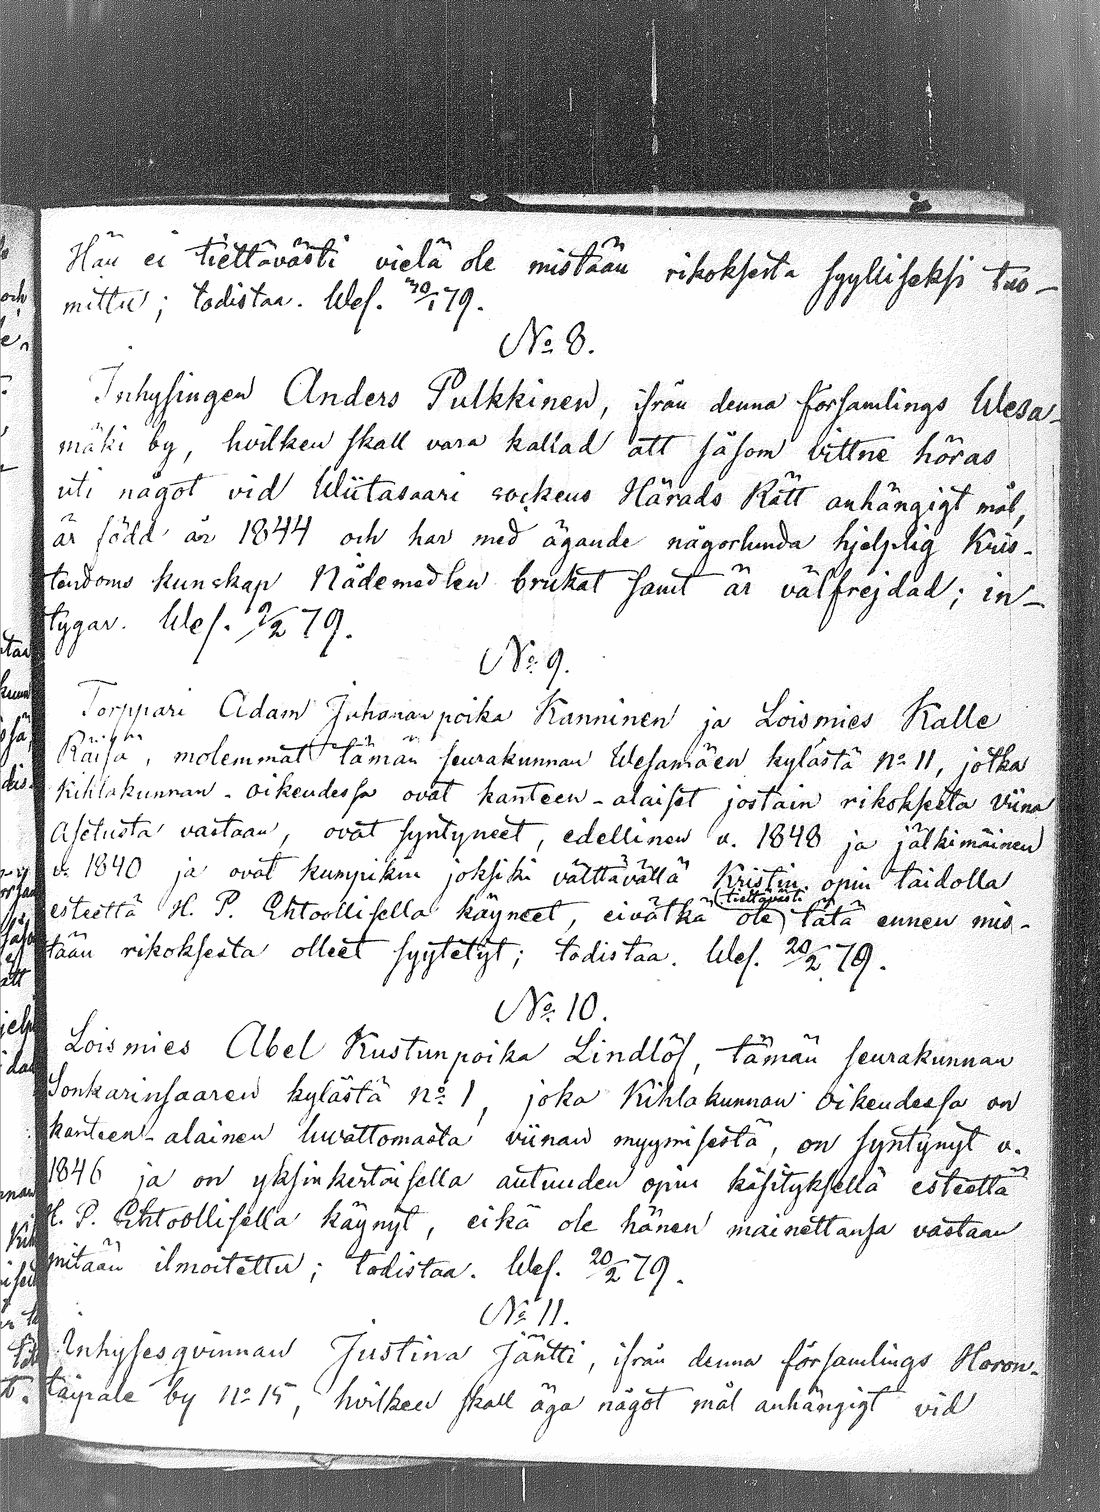 Hän ei tiettävästi vielä ole mistään rikoksesta syylliseksi tuo-
mittu; todistaa. Wes. 30/1 79.
No 8.
Inhysingen Anders Pulkkinen, ifrån denna församlings Wesa-
mäki by, hvilken skall vara kallad att såsom vittne höras
uti något vid Wiitasaari sockens Härads Rätt anhängigt mål,
är född år 1844 och har med ägande någorlunda hjelplig Kris-
tendoms kunskap Nådemedlen brukat samt är välfrejdad; in-
tygar. Wes. 9/2 79.
No 9.
Torppari Adam Juhonanpoika Kanninen ja Loismies Kalle
Räisä, molemmat tämän seurakunnan Wesamäen kylästä no 11, jotka
Kihlakunnan-oikeudessa ovat kanteen-alaiset jostain rikoksesta viina
asetusta vastaan, ovat syntyneet, edellinen v. 1848 ja jälkimäinen
v. 1840 ja ovat kumpikin joksiki välttävällä Kristin. opin taidolla
esteettä H. P. Ehtoollisella käyneet, eivätkä (tiettävästi ole) tätä ennen mis-
tään rikoksesta olleet syytetyt; todistaa. Wes. 20/2 79.
No 10.
Loismies Abel Kustunpoika Lindlöf, tämän seurakunnan
Sonkarinsaaren kylästä no 1, joka Kihlakunnan oikeudessa on
kanteen-alainen luvattomasta viinan myymisestä, on syntynyt v.
1846 ja on yksinkertaisella autuuden opin käsityksellä esteettä
H. P. Ehtoollisella käynyt, eikä ole hänen mainettansa vastaan
mitään ilmoitettu; todistaa. Wes. 20/2 79.
No 11.
Inhysesqvinnan Justina Jäntti, ifrån denna församlings Horon-
taipale by no 15, hvilken skall äga något mål anhängigt vid